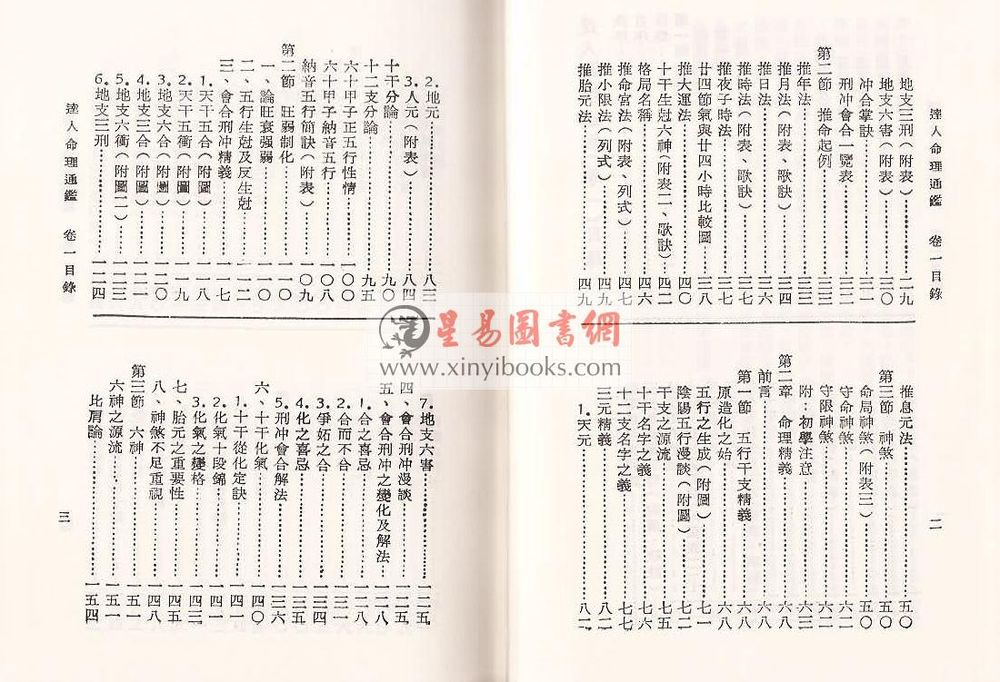 達人命理通鑑　卷一目錄
地支三刑（附表）……二九
地支六害（附表）……三〇
冲合掌訣……三一
刑冲會合一覽表……三二
第二節　推命起例……三三
推年法……三三
推月法（附表、歌訣）……三四
推日法……三六
推時法（附表、歌訣）……三七
推夜子時法……三七
廿四節氣與廿四小時比較圖……三八
推大運法……四〇
十干生尅六神（附表二、歌訣）……四二
格局名稱……四六
推命宮法（附表、列式）……四七
推小限法（列式）……四九
推胎元法……四九
推息元法……五〇
第三節　神煞……五〇
命局神煞（附表三）……五〇
守命神煞……六二
守限神煞……六二
附：初學注意……六三
第二章　命理精義……六八
前言……六八
第一節　五行干支精義……六八
原造化之始……六八
五行之生成（附圖）……七一
陰陽五行漫談（附圖）……七二
干支之源流……七五
十干名字之義……七六
十二支名字之義……七七
三元精義……八二
1.天元……八二
二
2.地元……八三
3.人元（附表）……八四
十干分論……九〇
十二支分論……九五
六十甲子正五行性情……一〇〇
六十甲子納音五行……一〇八
納音五行簡訣（附表）……一〇九
第二節　旺弱制化……一一〇
一、論旺衰强弱……一一〇
二、五行生尅及反生尅……一一二
三、會合刑冲精義……一一七
1.天干五合（附圖）……一一八
2.天干五衝（附圖）……一一九
3.地支六合（附圖）……一二〇
4.地支三合（附圖）……一二一
5.地支六衝（附圖二）……一二三
6.地支三刑……一二四
達人命理通鑑　卷一目錄
7.地支六害……一二五
四、會合刑冲漫談……一二五
五、會合刑冲之變化及解法……一二八
1.合之喜忌……一二八
2.合而不合……一三一
3.爭妬之合……一三四
4.化之喜忌……一三五
5.刑冲會合解法……一三六
六、十干化氣……一四〇
1.十干從化定訣……一四一
2.化氣十段錦……一四二
3.化氣之變格……一四三
七、胎元之重要性……一四五
八、神煞不足重視……一四八
第三節　六神……一五一
六神之源流……一五一
比肩論……一五四
三
星易圖書網
www.xinyibooks.com